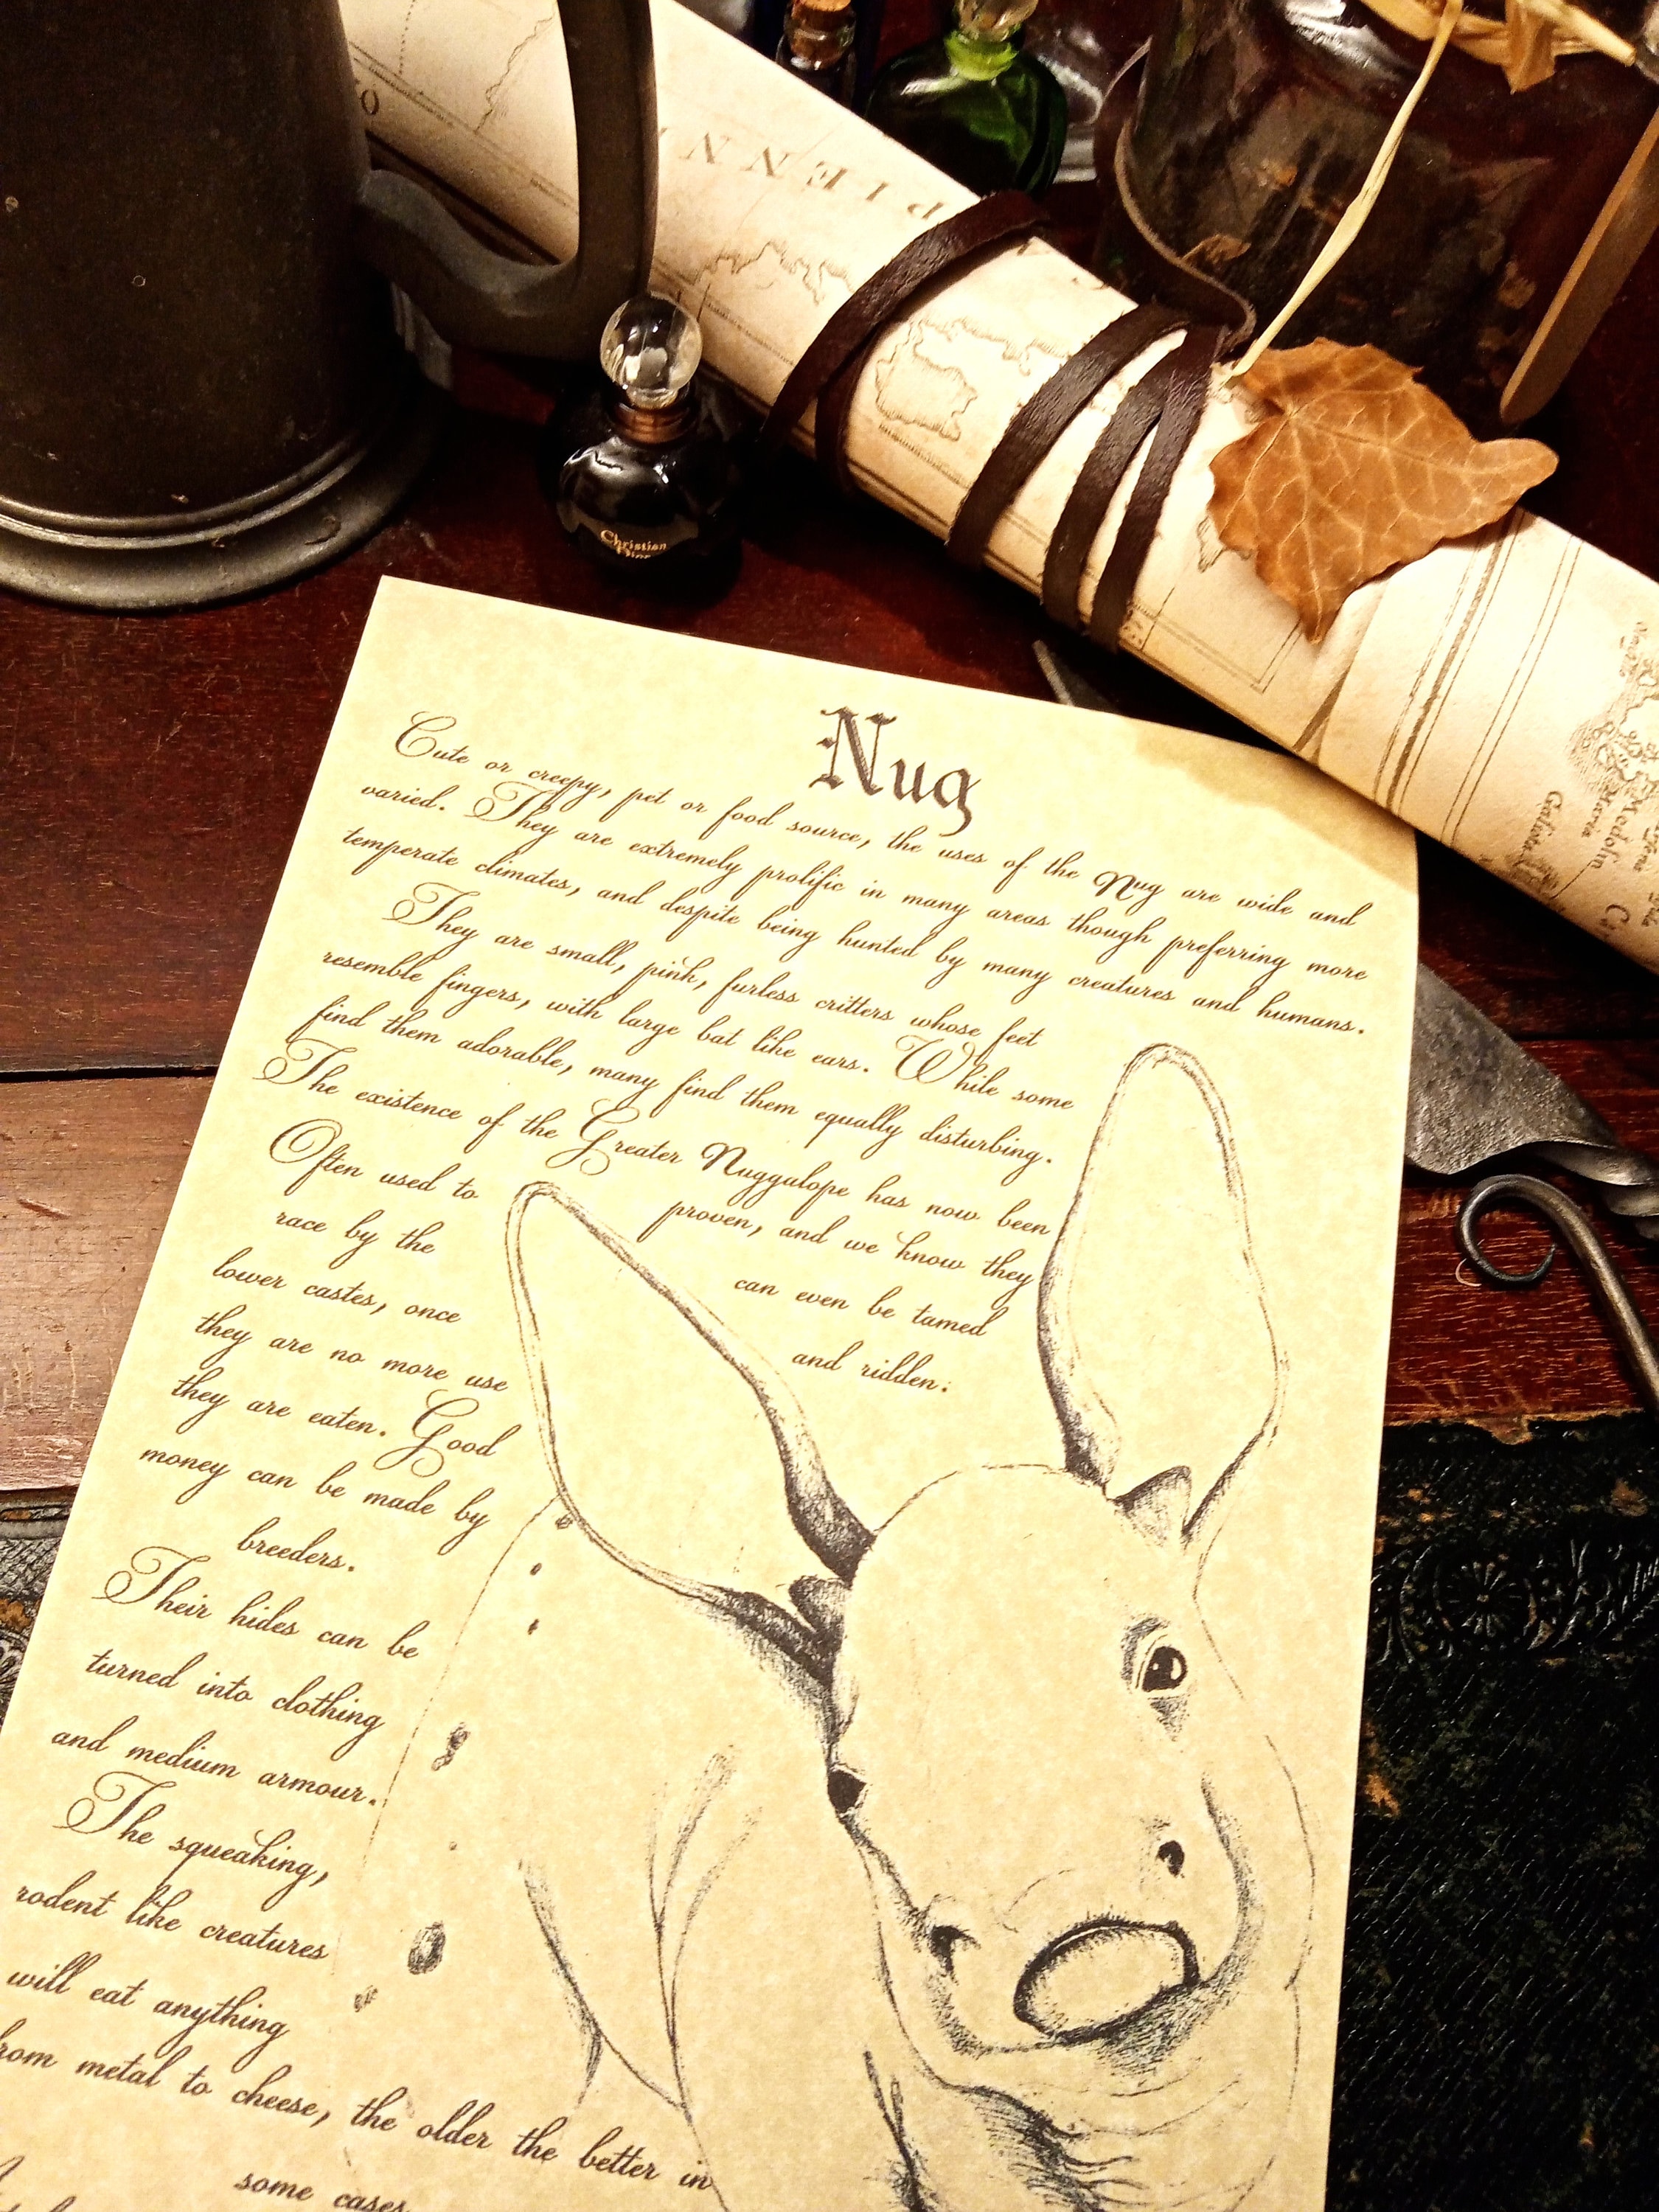 PIENN
Christian
Dior
Nug
Cute or creepy, pet or food source, the uses of the Nug are wide and
varied. They are extremely prolific in many areas though preferring more
temperate climates, and despite being hunted by many creatures and humans.
They are small, pink, furless critters whose feet
resemble fingers, with large bat like ears. While some
find them adorable, many find them equally disturbing.
The existence of the Greater Nuggalope has now been
proven, and we know they
can even be tamed
and ridden.
Often used to
race by the
lower castes, once
they are no more use
they are eaten. Good
money can be made by
breeders.
Their hides can be
turned into clothing
and medium armour.
The squeaking,
rodent like creatures
will eat anything
from metal to cheese, the older the better in
some cases